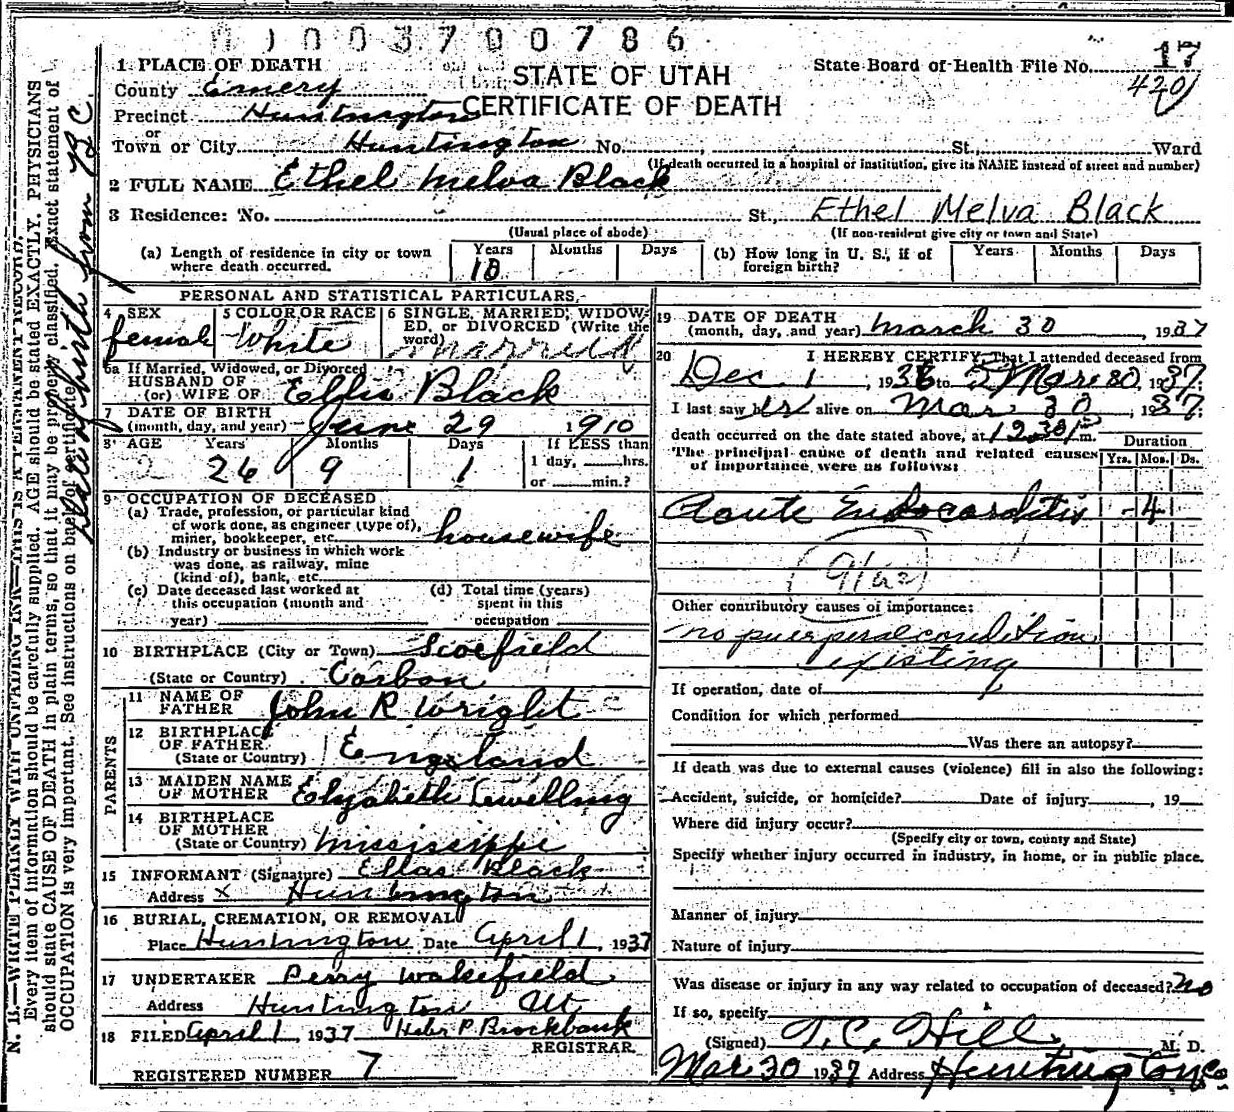 0 0 3 7 0 0 7 8 6
1 PLACE OF DEATH
STATE OF UTAH
CERTIFICATE OF DEATH
State Board of Health File No. 17
420
County Emery
Precinct Huntington
or
Town or City Huntington No. St. Ward
(If death occurred in a hospital or institution, give its NAME instead of street and number)
2 FULL NAME Ethel Melva Black
3 Residence: No. St., Ethel Melva Black
(Usual place of abode) (If non-resident give city or town and State)
(a) Length of residence in city or town where death occurred. Years 18 Months Days (b) How long in U. S., if of foreign birth? Years Months Days
PERSONAL AND STATISTICAL PARTICULARS
4 SEX female
5 COLOR OR RACE White
6 SINGLE, MARRIED, WIDOWED, or DIVORCED (Write the word) married
6a If Married, Widowed, or Divorced
HUSBAND OF
(or) WIFE OF Ellis Black
7 DATE OF BIRTH
(month, day, and year) June 29 1910
8 AGE Years 26 Months 9 Days 1 If LESS than 1 day, hrs. or min.?
9 OCCUPATION OF DECEASED
(a) Trade, profession, or particular kind
of work done, as engineer (type of),
miner, bookkeeper, etc. housewife
(b) Industry or business in which work
was done, as railway, mine
(kind of), bank, etc.
(c) Date deceased last worked at this occupation (month and year)
(d) Total time (years) spent in this occupation
10 BIRTHPLACE (City or Town) Scofield
(State or Country) Carbon
PARENTS
11 NAME OF FATHER John R Wright
12 BIRTHPLACE OF FATHER (State or Country) England
13 MAIDEN NAME OF MOTHER Elyzabeth Lewelling
14 BIRTHPLACE OF MOTHER (State or Country) Mississippi
15 INFORMANT (Signature) Ellas Black
Address x Huntington
16 BURIAL, CREMATION, OR REMOVAL
Place Huntington Date April 1, 1937
17 UNDERTAKER Perry Wakefield
Address Huntington Ut
18 FILED April 1, 1937 Heber P. Brockbank
REGISTRAR
REGISTERED NUMBER 7
19 DATE OF DEATH
(month, day, and year) March 30, 1937
20 I HEREBY CERTIFY, That I attended deceased from
Dec 1, 1936 to Mar 30, 1937;
I last saw her alive on Mar 30, 1937;
death occurred on the date stated above, at 12:30 P m.
The principal cause of death and related causes
of importance, were as follows:
Duration
Yrs. Mos. Ds.
Acute Endocarditis - 4
Other contributory causes of importance:
no puerperal condition
existing
If operation, date of
Condition for which performed
Was there an autopsy?
If death was due to external causes (violence) fill in also the following:
Accident, suicide, or homicide? Date of injury, 19
Where did injury occur?
(Specify city or town, county and State)
Specify whether injury occurred in industry, in home, or in public place.
Manner of injury
Nature of injury
Was disease or injury in any way related to occupation of deceased? no
If so, specify
(Signed) T. C. Hill M. D.
Mar 30 1937 Address Huntington
N. B.—WRITE PLAINLY WITH UNFADING INK—THIS IS A PERMANENT RECORD
Every item of information should be carefully supplied. AGE should be stated EXACTLY. PHYSICIANS
should state CAUSE OF DEATH in plain terms, so that it may be properly classified. Exact statement of
OCCUPATION is very important. See instructions on back of certificate.
date of birth from B C